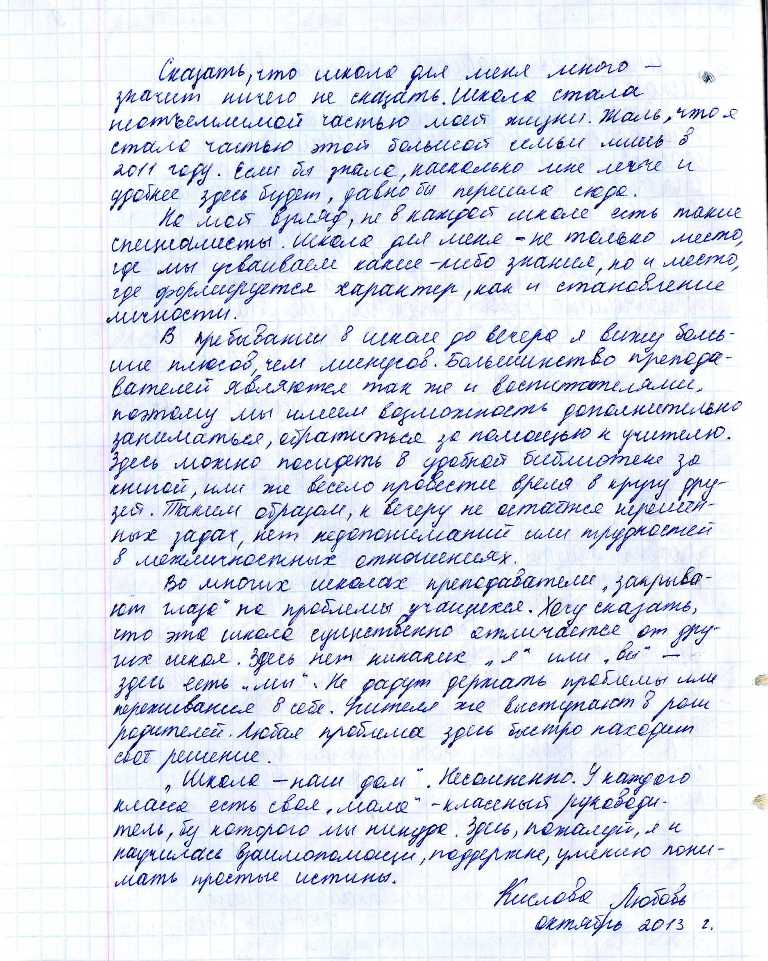 Сказать, что школа для меня много –
значит ничего не сказать. Школа стала
неотъемлимой частью моей жизни. Жаль, что я
стала частью этой большой семьи лишь в
2011 году. Если бы знала, насколько мне легче и
удобнее здесь будет, давно бы перешла сюда.
На мой взгляд, не в каждой школе есть такие
специалисты. Школа для меня – не только место,
где мы усваиваем какие-либо знания, но и место,
где формируется характер, как и становление
личности.
В пребывании в школе до вечера я вижу боль-
ше плюсов, чем минусов. Большинство препода-
вателей являются так же и воспитателями,
поэтому мы имеем возможность дополнительно
заниматься, обратиться за помощью к учителю.
Здесь можно посидеть в удобной библиотеке за
книгой, или же весело провести время в кругу дру-
зей. Таким образом, к вечеру не остаётся нерешён-
ных задач, нет недопониманий или трудностей
в межличностных отношениях.
Во многих школах преподаватели „закрыва-
ют глаза" на проблемы учащихся. Хочу сказать,
что эта школа существенно отличается от дру-
гих школ. Здесь нет никаких „я" или „вы" –
здесь есть „мы". Не дадут держать проблемы или
переживания в себе. Учителя же выступают в роли
родителей. Любая проблема здесь быстро находит
своё решение.
„Школа – наш дом". Несомненно. У каждого
класса есть своя „мама" – классный руководи-
тель, без которого мы никуда. Здесь, пожалуй, я и
научилась взаимопомощи, поддержке, умению пони-
мать простые истины.
Кислова Любовь
октябрь 2013 г.